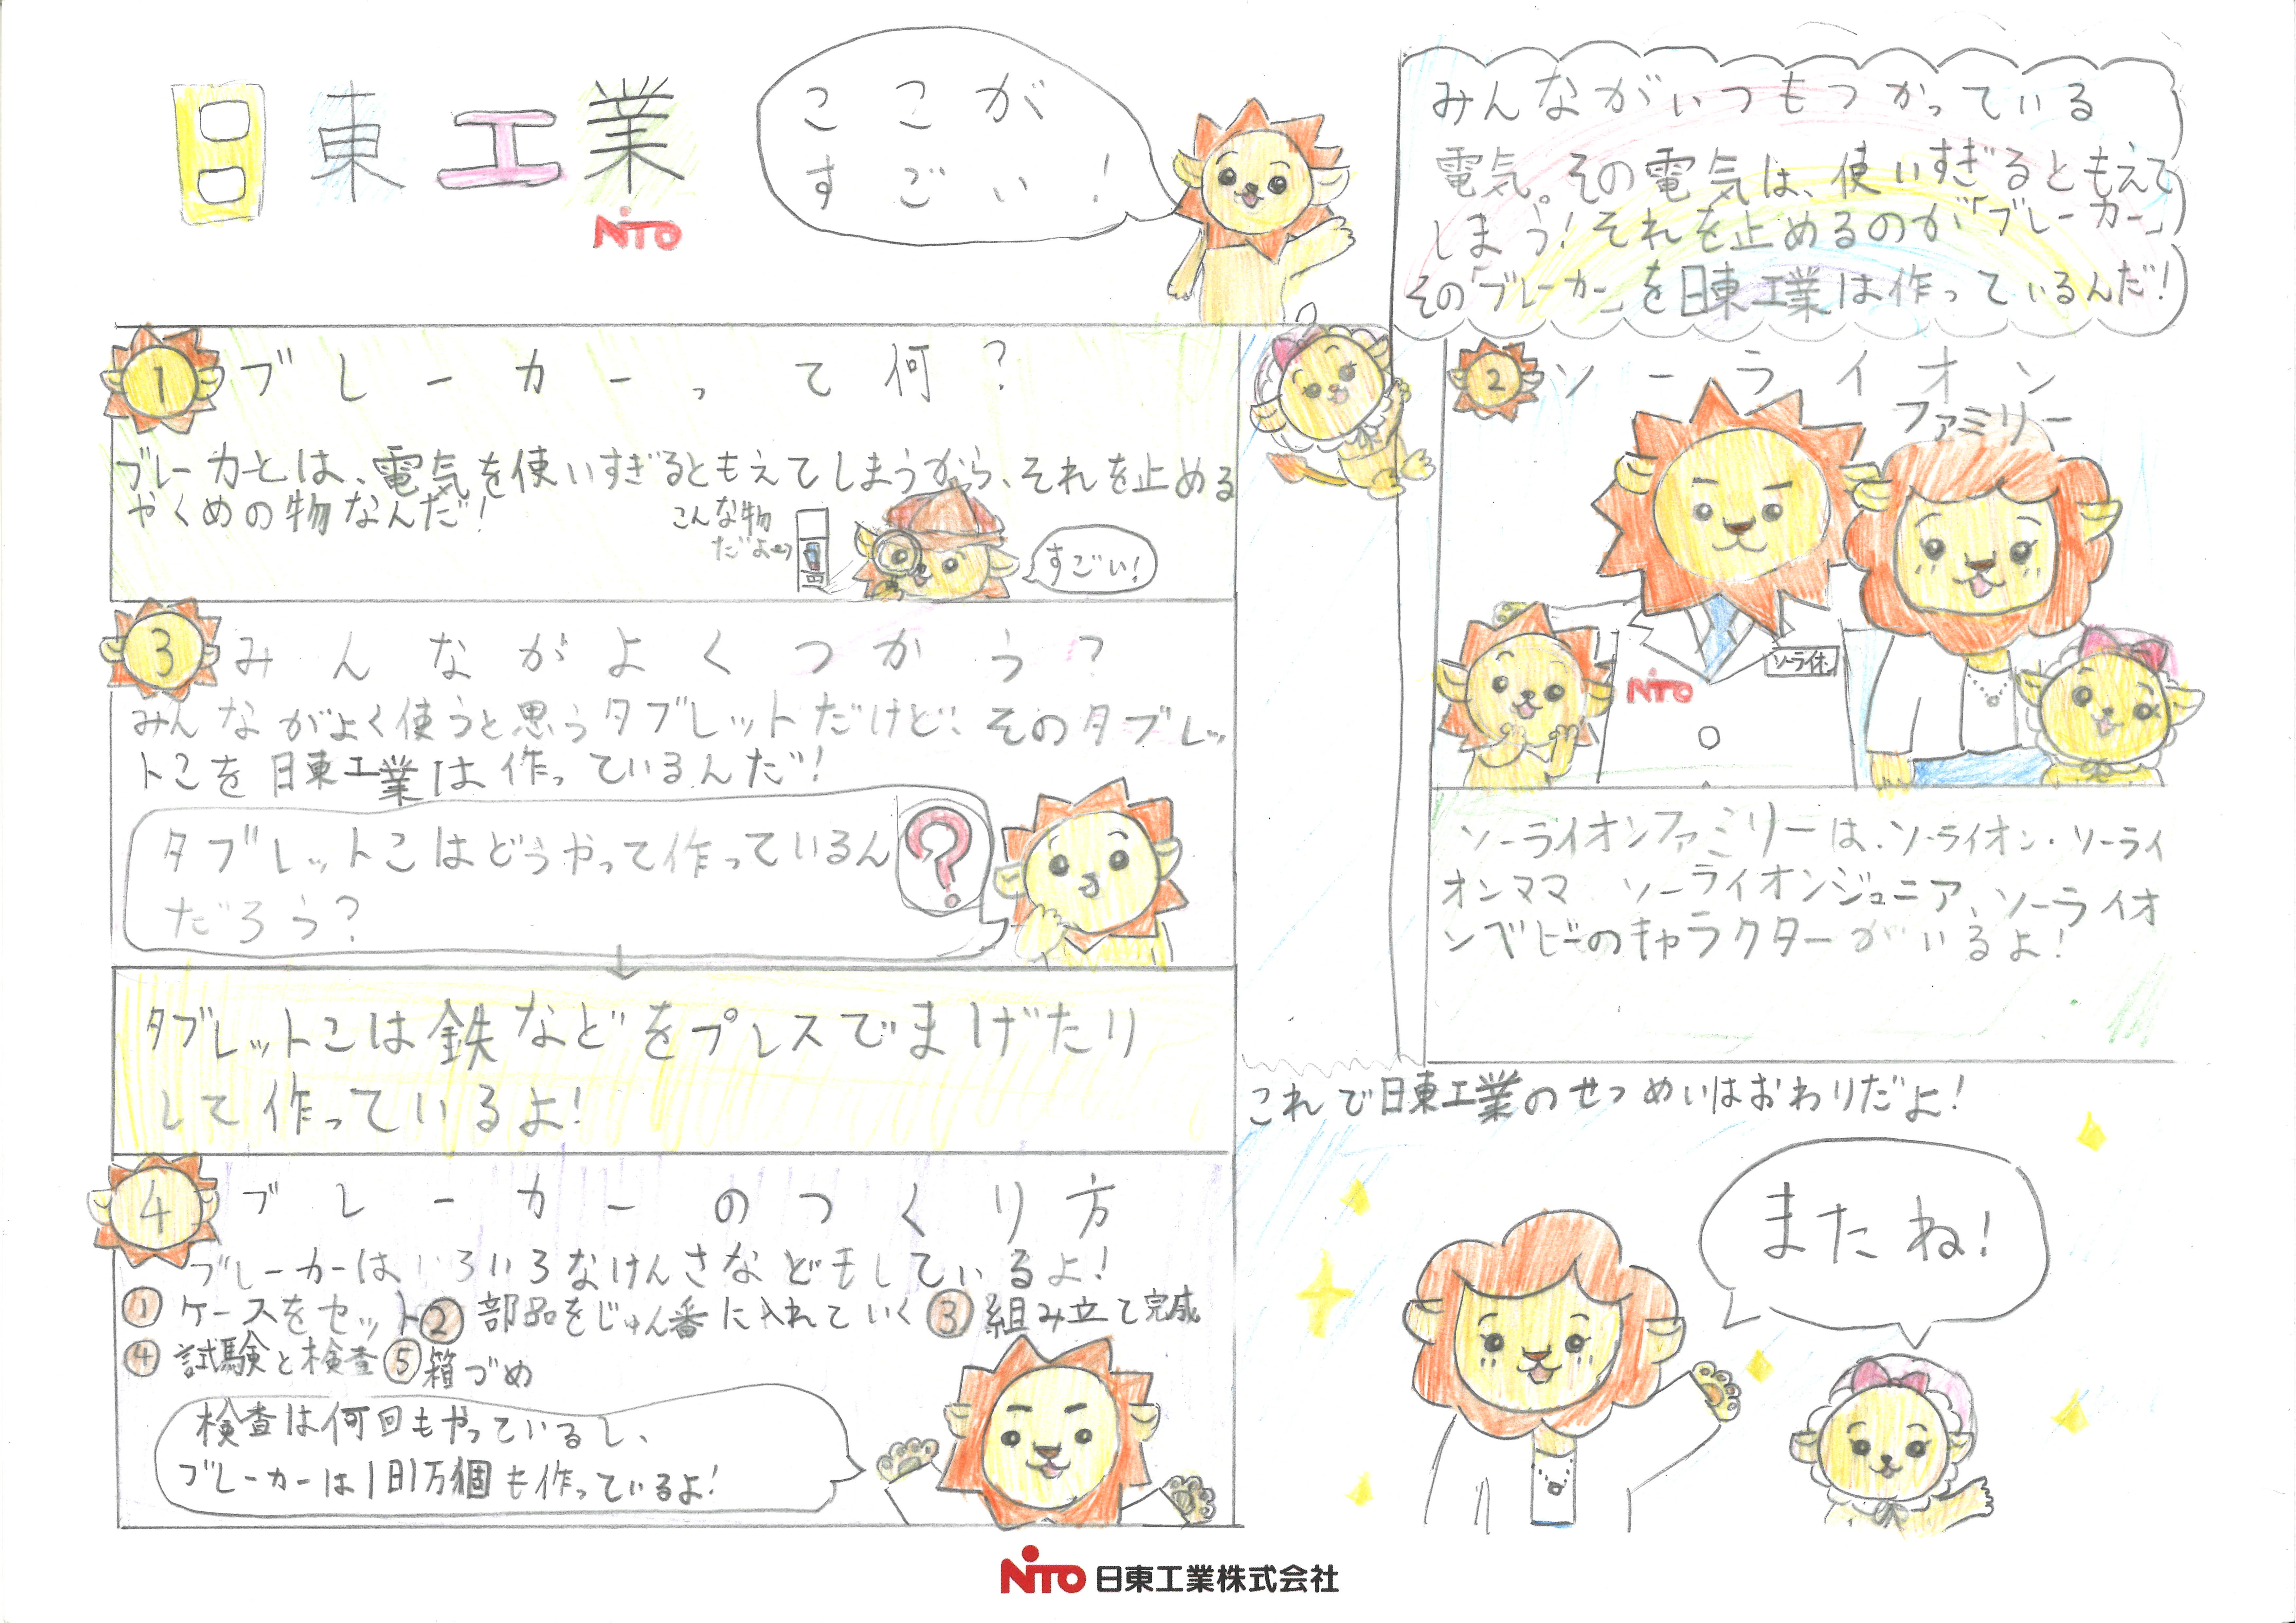 日東工業
NITO
ここが
すごい!
みんながいつもつかっている
電気。その電気は、使いすぎるともえて
しまう!それを止めるのが「ブレーカー」
その「ブレーカー」を日東工業は作っているんだ!
1 ブレーカーって何?
ブレーカーとは、電気を使いすぎるともえてしまうから、それを止める
やくめの物なんだ!
こんな物
だよ→
すごい!
2 ソーライオン
ファミリー
NITO
ソーライオン
ソーライオンファミリーは、ソーライオン・ソーライ
オンママ ソーライオンジュニア、ソーライオ
ンベビーのキャラクターがいるよ!
3 みんながよくつかう?
みんながよく使うと思うタブレットだけど、そのタブレッ
トこを日東工業は作っているんだ!
タブレットこはどうやって作っているん
だろう?
?
タブレットこは鉄などをプレスでまげたり
して作っているよ!
4 ブレーカーのつくり方
ブレーカーはいろいろなけんさなどもしているよ!
①ケースをセット②部品をじゅん番に入れていく③組み立て完成
④試験と検査⑤箱づめ
検査は何回もやっているし、
ブレーカーは1日1万個も作っているよ!
これで日東工業のせつめいはおわりだよ!
またね!
NITO 日東工業株式会社